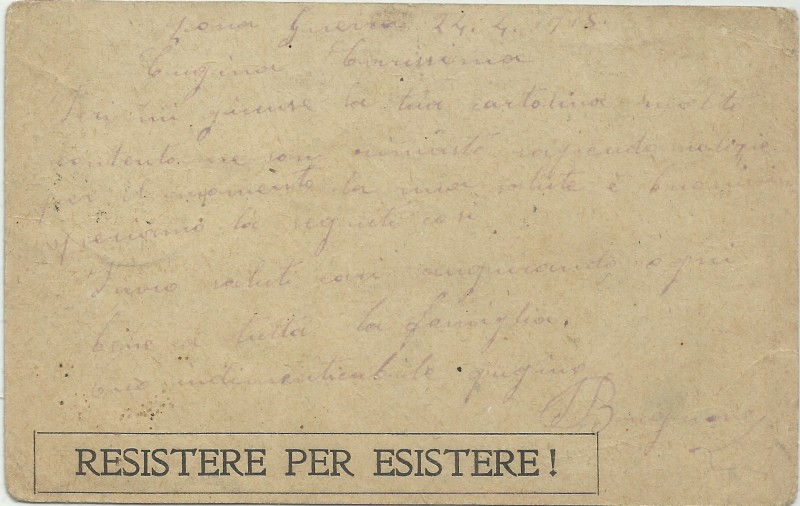 Zona Guerra 24. 4. 1918.
Cugina Carissima
Ieri mi giunse la tua cartolina molto
contento ne son rimasto sapendo notizie
per il momento la mia salute è buonissima
speriamo la seguiti così
Invio saluti cari augurando ogni
bene a tutta la famiglia.
tuo indimenticabile cugino
RESISTERE PER ESISTERE!